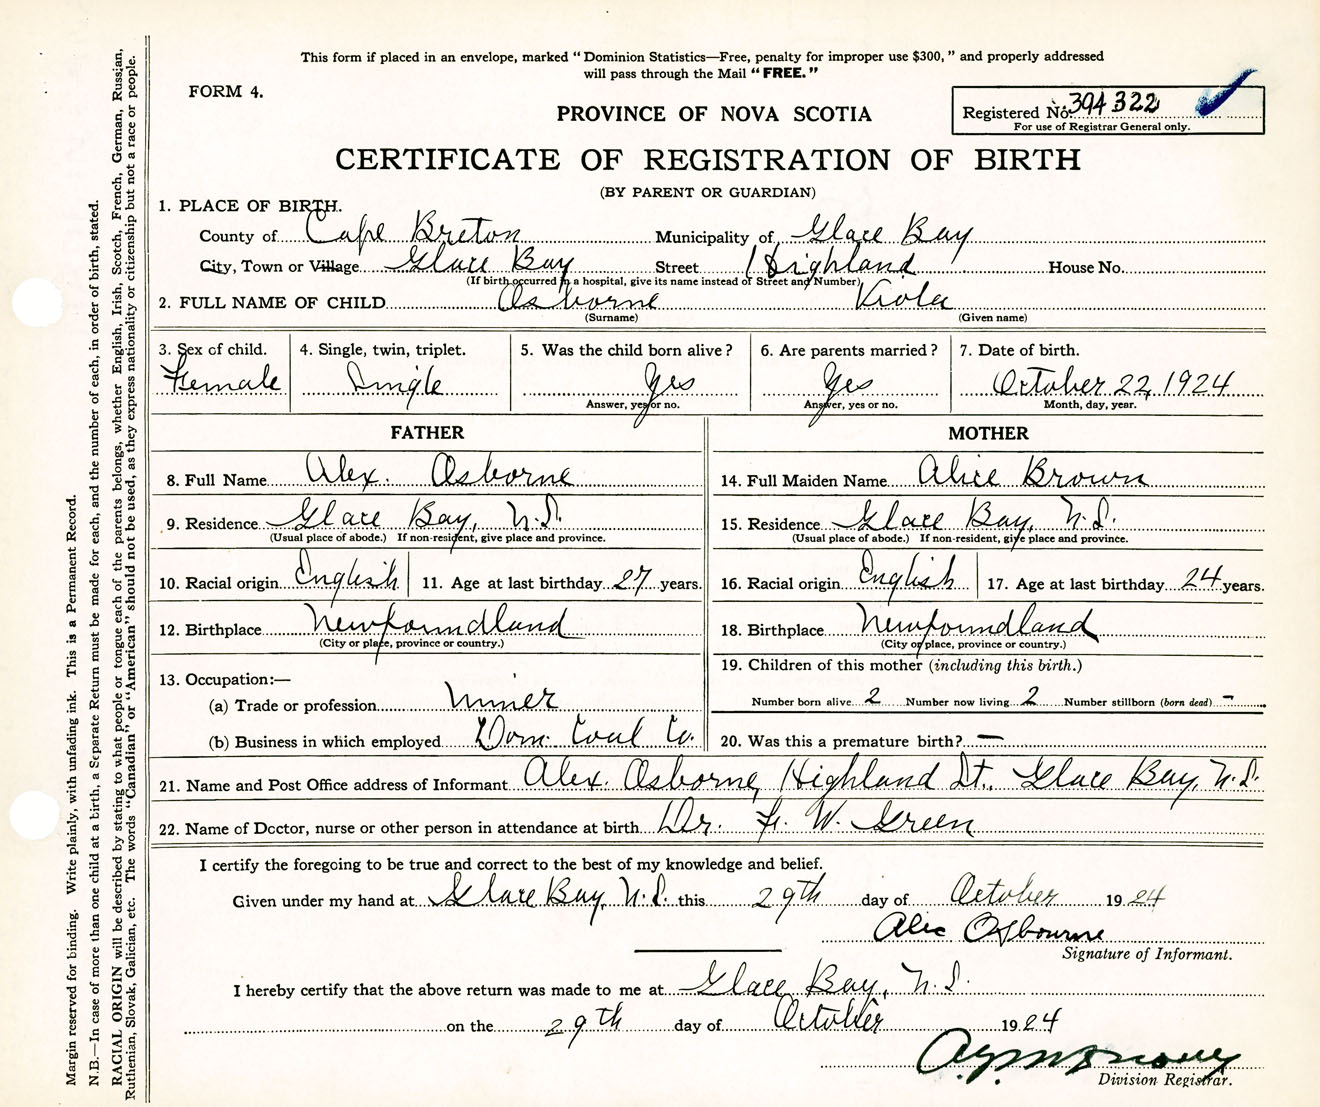 This form if placed in an envelope, marked "Dominion Statistics—Free, penalty for improper use $300," and properly addressed
will pass through the Mail "FREE."
FORM 4.
PROVINCE OF NOVA SCOTIA
Registered No. 394322
For use of Registrar General only.
CERTIFICATE OF REGISTRATION OF BIRTH
(BY PARENT OR GUARDIAN)
1. PLACE OF BIRTH.
County of Cape Breton Municipality of Glace Bay
City, Town or Village Glace Bay Street Highland House No.
(If birth occurred in a hospital, give its name instead of Street and Number)
2. FULL NAME OF CHILD Osborne Viola
(Surname) (Given name)
3. Sex of child. 4. Single, twin, triplet. 5. Was the child born alive? 6. Are parents married? 7. Date of birth.
Female Single Yes Yes October 22, 1924
Answer, yes or no. Answer, yes or no. Month, day, year.
FATHER MOTHER
8. Full Name Alex. Osborne 14. Full Maiden Name Alice Brown
9. Residence Glace Bay, N.S. 15. Residence Glace Bay, N.S.
(Usual place of abode.) If non-resident, give place and province. (Usual place of abode.) If non-resident, give place and province.
10. Racial origin English 11. Age at last birthday 27 years. 16. Racial origin English 17. Age at last birthday 24 years.
12. Birthplace Newfoundland 18. Birthplace Newfoundland
(City or place, province or country.) (City or place, province or country.)
13. Occupation:— 19. Children of this mother (including this birth.)
(a) Trade or profession Miner Number born alive 2 Number now living 2 Number stillborn (born dead) —
(b) Business in which employed Dom. Coal Co. 20. Was this a premature birth? —
21. Name and Post Office address of Informant Alex. Osborne, Highland St., Glace Bay, N.S.
22. Name of Doctor, nurse or other person in attendance at birth Dr. F. W. Green
I certify the foregoing to be true and correct to the best of my knowledge and belief.
Given under my hand at Glace Bay, N.S. this 29th day of October 1924
Alec Osbourne
Signature of Informant.
I hereby certify that the above return was made to me at Glace Bay, N.S.
on the 29th day of October 1924
Division Registrar.
Margin reserved for binding. Write plainly, with unfading ink. This is a Permanent Record.
N.B.—In case of more than one child at a birth, a Separate Return must be made for each, and the number of each, in order of birth, stated.
RACIAL ORIGIN will be described by stating to what people or tongue each of the parents belongs, whether English, Irish, Scotch, French, German, Russian,
Ruthenian, Slovak, Galician, etc. The words "Canadian" or "American" should not be used, as they express nationality or citizenship but not a race or people.